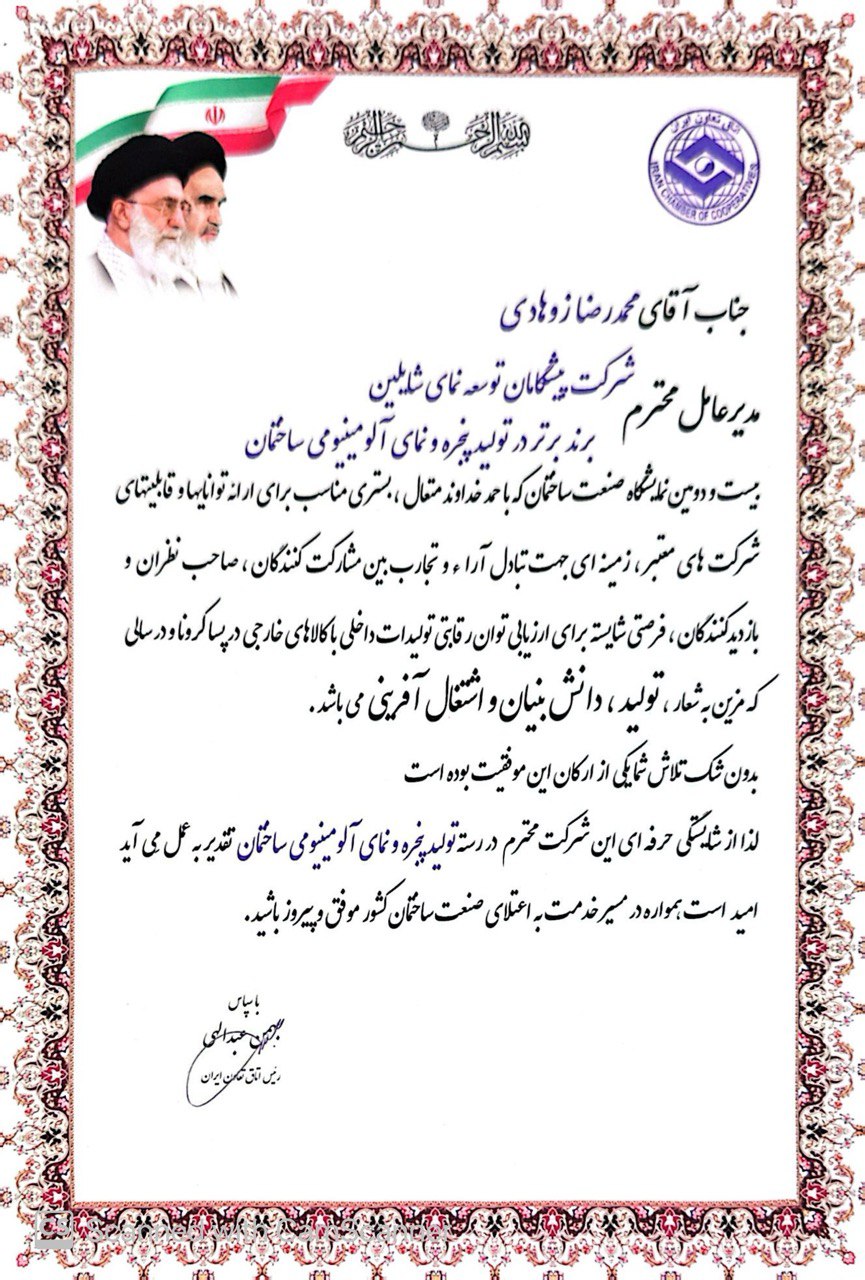 بسم الله الرحمن الرحیم
اتاق تعاون ایران
IRAN CHAMBER OF COOPERATIVES
جناب آقای محمدرضا زوهادی
مدیرعامل محترم
شرکت پیشگامان توسعه نمای شایلین
برند برتر در تولید پنجره و نمای آلومینیومی ساختمان
بیست و دومین نمایشگاه صنعت ساختمان که با حمد خداوند متعال ، بستری مناسب برای ارائه توانایها و قابلیتهای
شرکت های معتبر ، زمینه ای جهت تبادل آراء و تجارب بین مشارکت کنندگان ، صاحب نظران و
بازدیدکنندگان ، فرصتی شایسته برای ارزیابی توان رقابتی تولیدات داخلی با کالاهای خارجی در پسا کرونا و در سالی
که مزین به شعار ، تولید ، دانش بنیان و اشتغال آفرینی می باشد .
بدون شک تلاش شما یکی از ارکان این موفقیت بوده است
لذا از شایستگی حرفه ای این شرکت محترم در رسته تولید پنجره و نمای آلومینیومی ساختمان تقدیر به عمل می آید
امید است همواره در مسیر خدمت به اعتلای صنعت ساختمان کشور موفق و پیروز باشید .
با سپاس
بهمن عبدالهی
رئیس اتاق تعاون ایران
CS Scanned with CamScanner